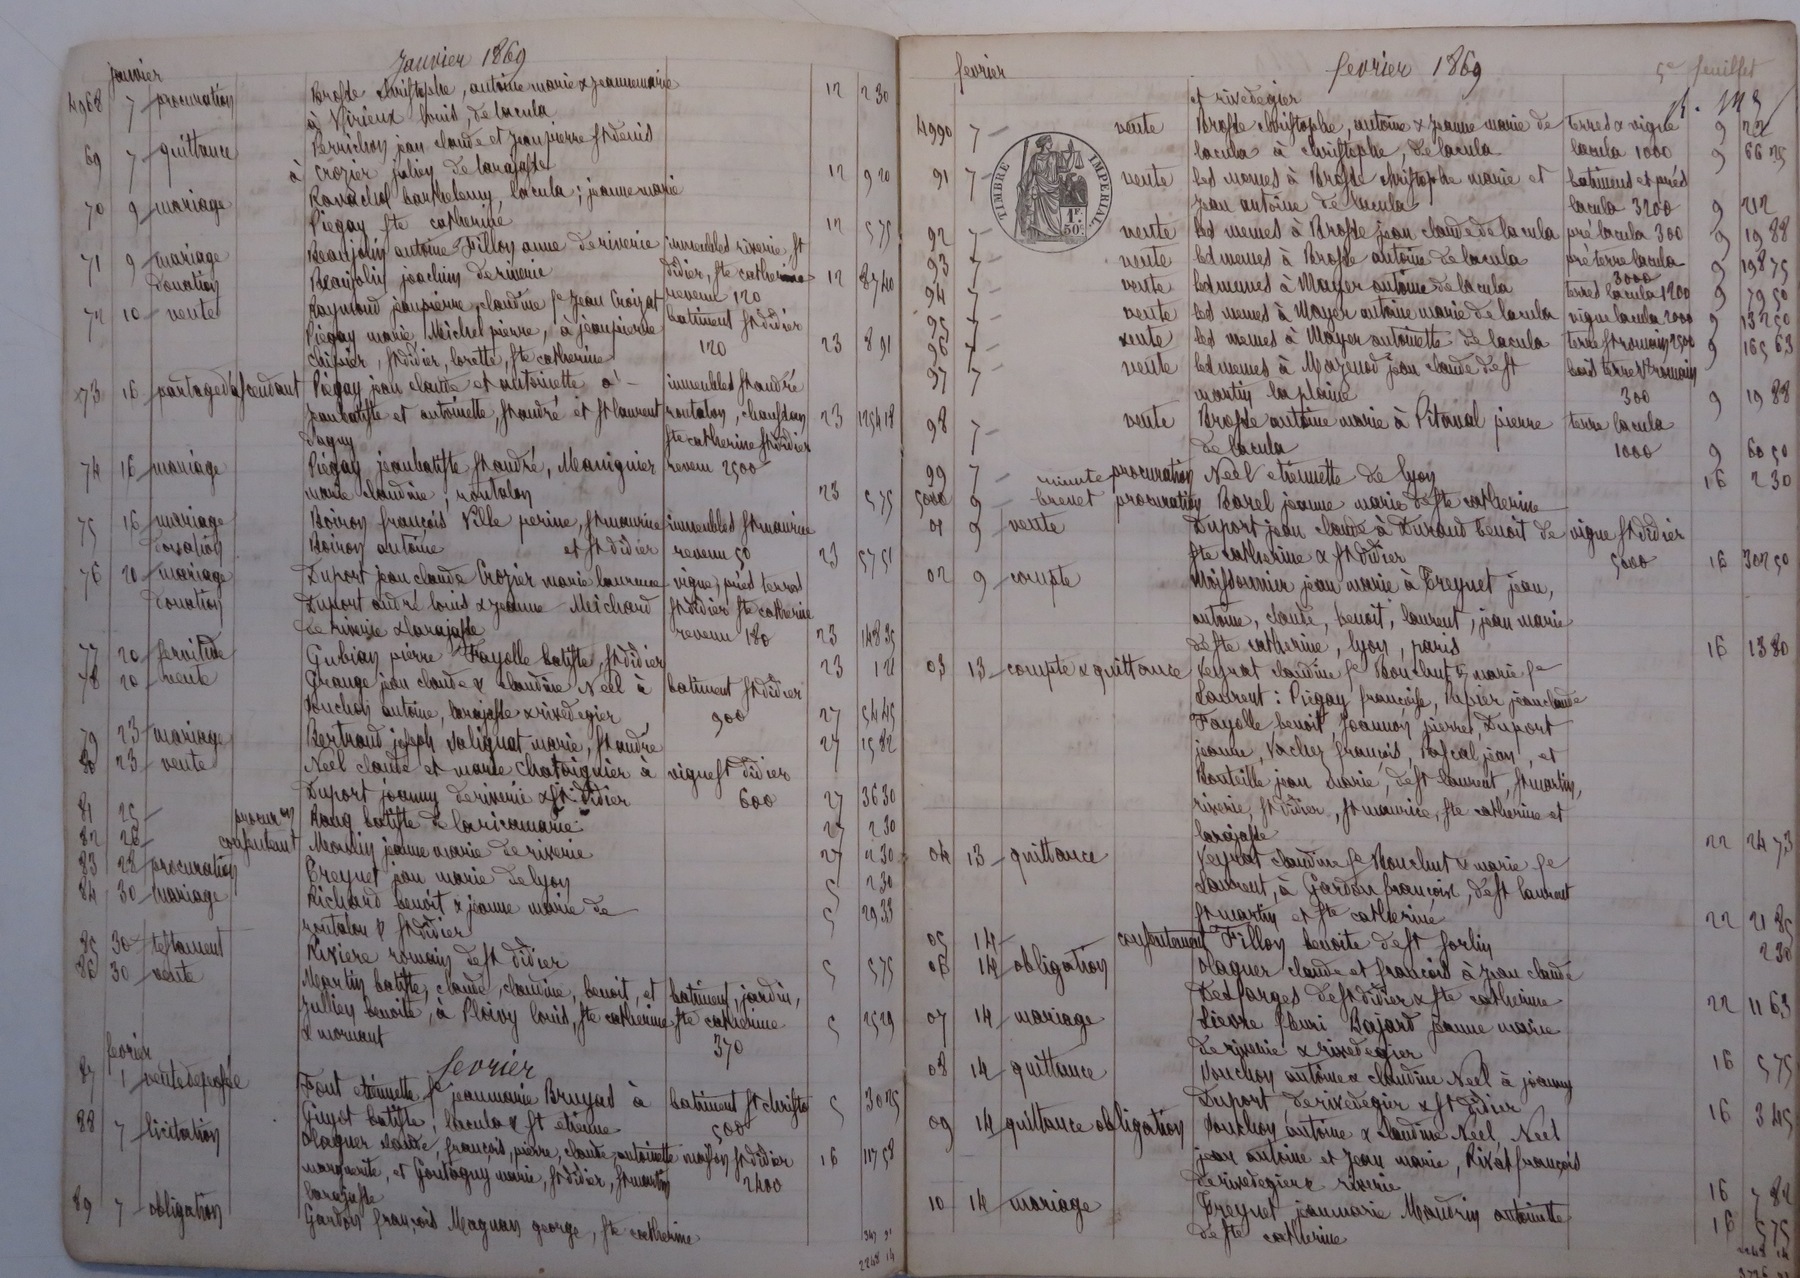 janvier
Janvier 1869
4968 7 procuration Brosse christophe, antoine marie & jeannemarie 12 2 30
à Virieux louis, de lacula
69 7 quittance jean claude et jean pierre St denis
à crozier julien de larajasse 12 9 20
70 9 mariage Ravachol barthelemy, lacula ; jeanne marie
Piegay ste catherine 12 5 75
71 9 mariage Beaujolin antoine Fillon anne deriverie immeubles riverie st
Donation Beaujolin joachim deriverie didier, ste catherine 12 87 40
revenu 120
72 10 vente Raymond jeanpierre, claudine fe jean Croizat batiment st didier
Piegay marie, Michel pierre, à jeanpierre 120 23 8 91
st didier, lorette, ste catherine
73 16 partage d'ascendant Piegay jean claude et antoinette à immeubles st andré
jeanbatiste et antoinette, st andré et st laurent rontalon, chaussan 23 125 418
Dagny ste catherine st didier
74 16 mariage Piegay jeanbatiste st andré, Manignier revenu 2500
marie claudine, rontalon 23 5 75
75 16 mariage Boiron françois Ville perine, st maurice immeubles st maurice
Donation Boiron antoine et st didier revenu 50 23 57 51
76 20 mariage Duport jean claude Crozier marie laurence vigne, prés terres
Donation Duport andré louis & jeanne Meichard st didier ste catherine
de riverie & larajasse revenu 180 23 148 35
77 20 servitude Gubian pierre Fayolle batiste, st didier 23 1 21
78 20 vente Grange jean claude & claudine Neel à batiment st didier
Bouchon antoine, larajasse & rivedegier 900 27 54 45
79 23 mariage Bertrand joseph Salignat marie, st andré 27 15 82
80 23 vente Neel claude et marie Chataignier à vigne st didier
Duport joanny deriverie & st didier 600 27 36 30
81 25 procuron batiste de laricamarie 27 2 30
82 26 consentement Moulin jeanne marie deriverie 27 2 30
83 28 procuration Treynet jean marie delyon 5 2 30
84 30 mariage Richard benoit & jeanne marie de 5 29 33
rontalon & st didier
85 30 testament Riviere romain de st didier 5 5 75
86 30 vente Martin batiste, claude, claudine, benoit, et batiment, jardin,
Jullien benoite, à Ploivy louis, ste catherine ste catherine 5 25 29
& mornant 370
fevrier
fevrier
87 1 ventedepossé Font etiennette fe jeanmarie Bruyas à batiment st christo 5 30 25
Guyot batiste, lacula & st etienne 500
88 7 licitation claude, françois, pierre, claude, antoinette maison st didier 16 117 58
marguerite, et Goutagny marie, st didier, st martin 2400
larajasse
89 7 obligation Gardon françois Magnan george, ste catherine
347 91
2248 14
fevrier
fevrier 1869
5e feuillet
et rivedegier
4990 7 vente Brosse christophe, antoine & jeanne marie de terres & vigne 9 22
lacula à christophe, de lacula lacula 1000 9 66 25
91 7 vente les memes à Brosse christophe marie et batimens et prés
jean antoine de lacula lacula 3200 9 212
92 7 vente les memes à Brosse jean claude de lacula pré lacula 300 9 19 88
93 7 vente les memes à Brosse antoine de lacula pré terre lacula 9 198 75
3000
94 7 vente les memes à Mayer antoine de lacula terres lacula 1200 9 79 50
95 7 vente les memes à Mayer antoine marie de lacula vigne lacula 2000 9 132 50
96 7 vente les memes à Mayer antoinette de lacula terre st romain 2500 9 165 63
97 7 vente les memes à Mazenod jean claude de st bois terres st romain
martin la plaine 300 9 19 88
98 7 vente Brosse antoine marie à Pitaval pierre terre lacula
de lacula 1000 9 60 50
99 7 minute procuration Neel etiennette de lyon 16 2 30
5000 9 brevet procuration Barel jeanne marie de ste catherine
01 9 vente Duport jean claude à Durand benoit de vigne st didier
ste catherine & st didier 5000 16 302 50
02 9 compte Moissonnier jean marie à Treynet jean,
antoine, claude, benoit, laurent, jean marie
de ste catherine, lyon, paris 16 13 80
03 13 compte & quittance Veyrat claudine fe Bouchut & marie fe
Laurent : Piegay françoise, Papier jeanclaude
Fayolle benoit Joannon pierre, Duport
jeanne, Vacher françois, Pascal jean, et
Bouteille jean marie, de st laurent, st martin,
riverie, st didier, st maurice, ste catherine et
larajasse 22 24 73
04 13 quittance Veyrat claudine fe Bouchut & marie fe
Laurent, à Gardon françois, de st laurent
st martin et ste catherine 22 21 85
05 14 consentement Fillon benoite de st sorlin 2 30
06 14 obligation claude et françois à jean claude
Desfarges de st didier & ste catherine 22 11 63
07 14 mariage Lievre fleuri Bajard jeanne marie
deriverie & rivedegier 16 5 75
08 14 quittance Bouchon antoine & claudine Neel à joanny
Duport derivedegier & st didier 16 3 45
09 14 quittance obligation Bouchon antoine & claudine Neel, Neel
jean antoine et jean marie, Rivat françois
derivedegier & riverie 16 7 82
10 14 mariage Treynet jeanmarie Maudrin antoinette 16 5 75
de ste catherine
TIMBRE IMPERIAL
1F
50c